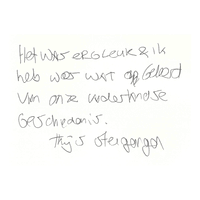 Het was erg leuk & ik
heb weer wat op geleerd
van onze nederlandse
Geschiedenis.
Thijs